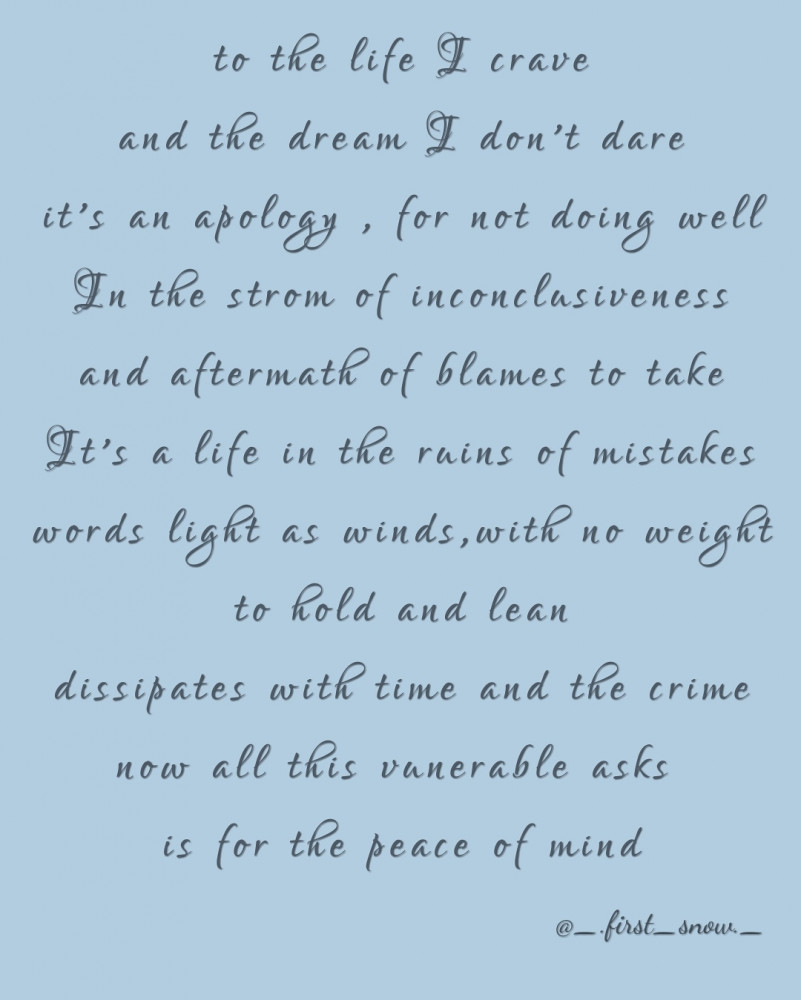 to the life I crave
and the dream I don't dare
it's an apology , for not doing well
In the strom of inconclusiveness
and aftermath of blames to take
It's a life in the ruins of mistakes
words light as winds,with no weight
to hold and lean
dissipates with time and the crime
now all this vunerable asks
is for the peace of mind
@_.first_snow._